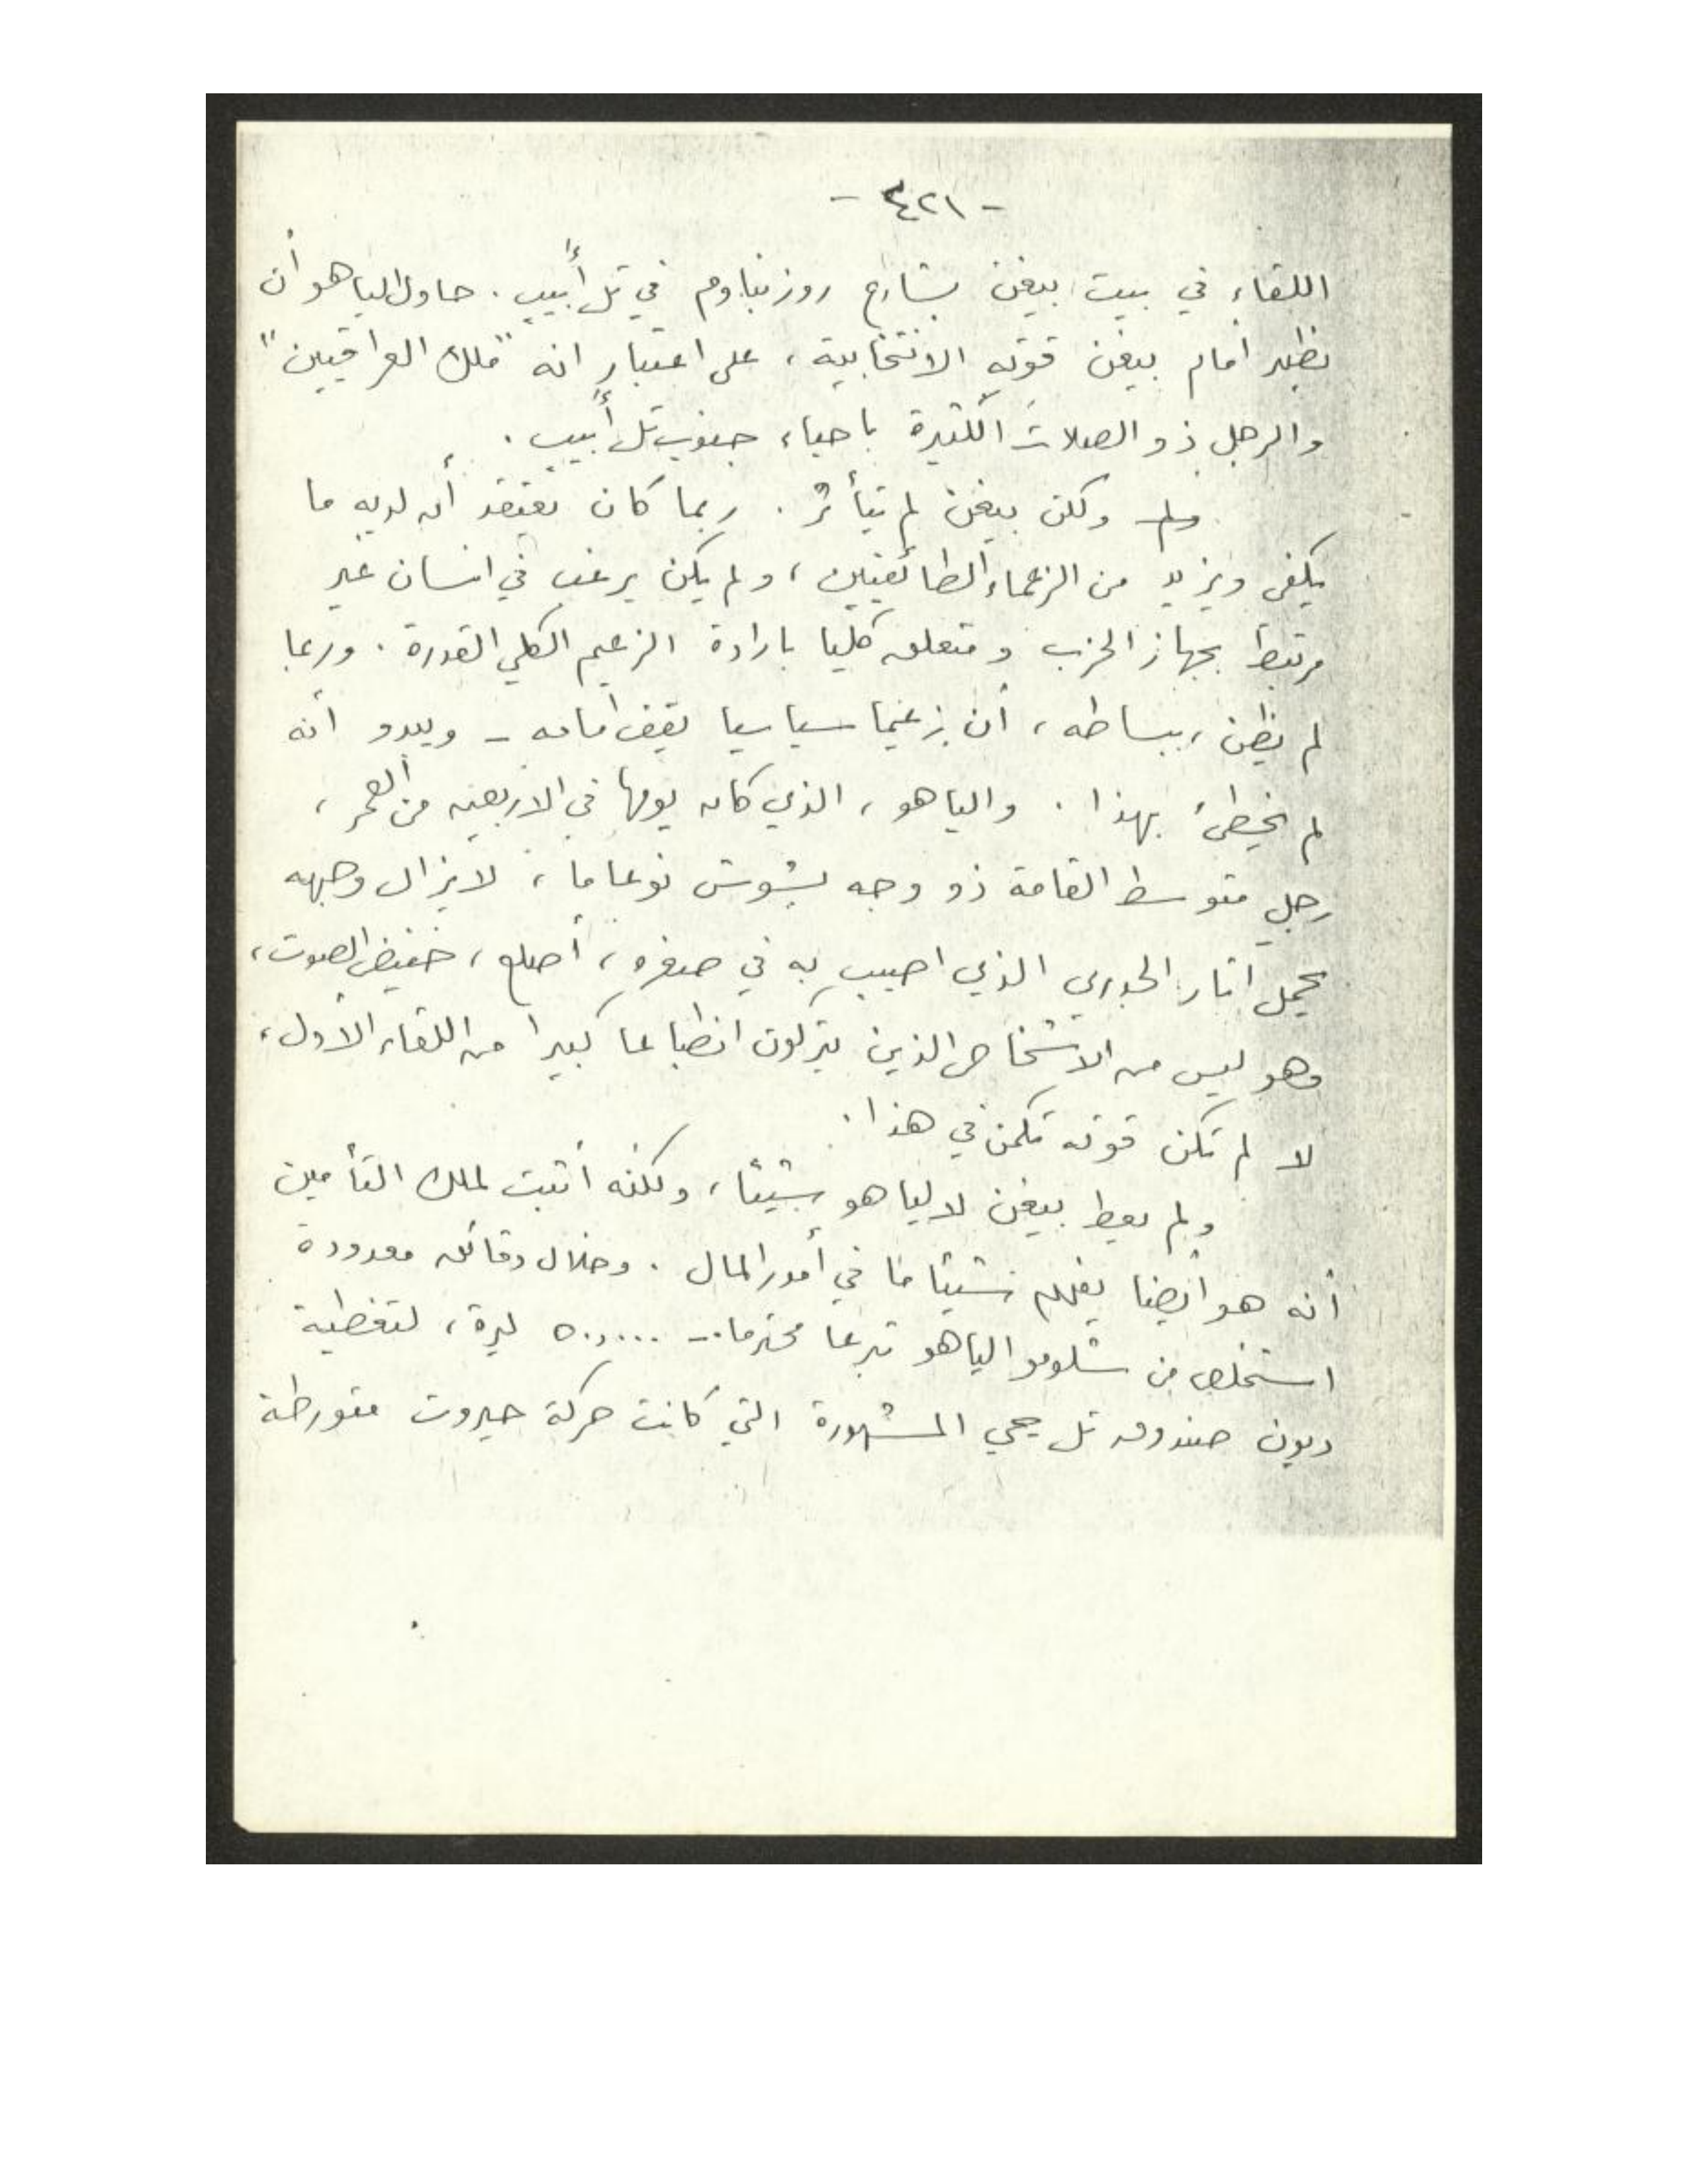 - ٤٢١ -
اللقاء في بيت بيغن بشارع روزنباوم في تل أبيب . حاول الياهو أن
يظهر أمام بيغن قوته الانتخابية ، على اعتبار انه "ملك العراقيين"
والرجل ذو الصلات الكثيرة باحياء جنوب تل أبيب .
ولم ولكن بيغن لم يتأثر . ربما كان يعتقد أن لديه ما
يكفي ويزيد من الزعماء الطائفيين ، ولم يكن يرغب في انسان غير
مرتبط بجهاز الحزب ومتعلق كليا بارادة الزعيم الكلي القدرة . وربما
لم يظن ، ببساطه ، أن زعيما سياسيا يقف أمامه - ويبدو أنه
لم يخطئ بهذا . والياهو ، الذي كان يومها في الاربعين من العمر ،
رجل متوسط القامة ذو وجه بشوش نوعا ما ، لا يزال وجهه
يحمل آثار الجدري الذي اصيب به في صغره ، أصلع ، خفيض الصوت ،
وهو ليس من الاشخاص الذين يتركون انطباعا كبيرا من اللقاء الأول ،
لا لم تكن قوته تكمن في هذا .
ولم يعط بيغن لالياهو شيئا ، ولكنه أثبت لملك التأمين
أنه هو أيضا يفهم شيئا ما في أمور المال . وخلال دقائق معدودة
استخلص من شلومو الياهو تبرعا محترما - ٥٠,٠٠٠ ليرة ، لتغطية
ديون صندوق تل حي المشهورة التي كانت حركة حيروت متورطة